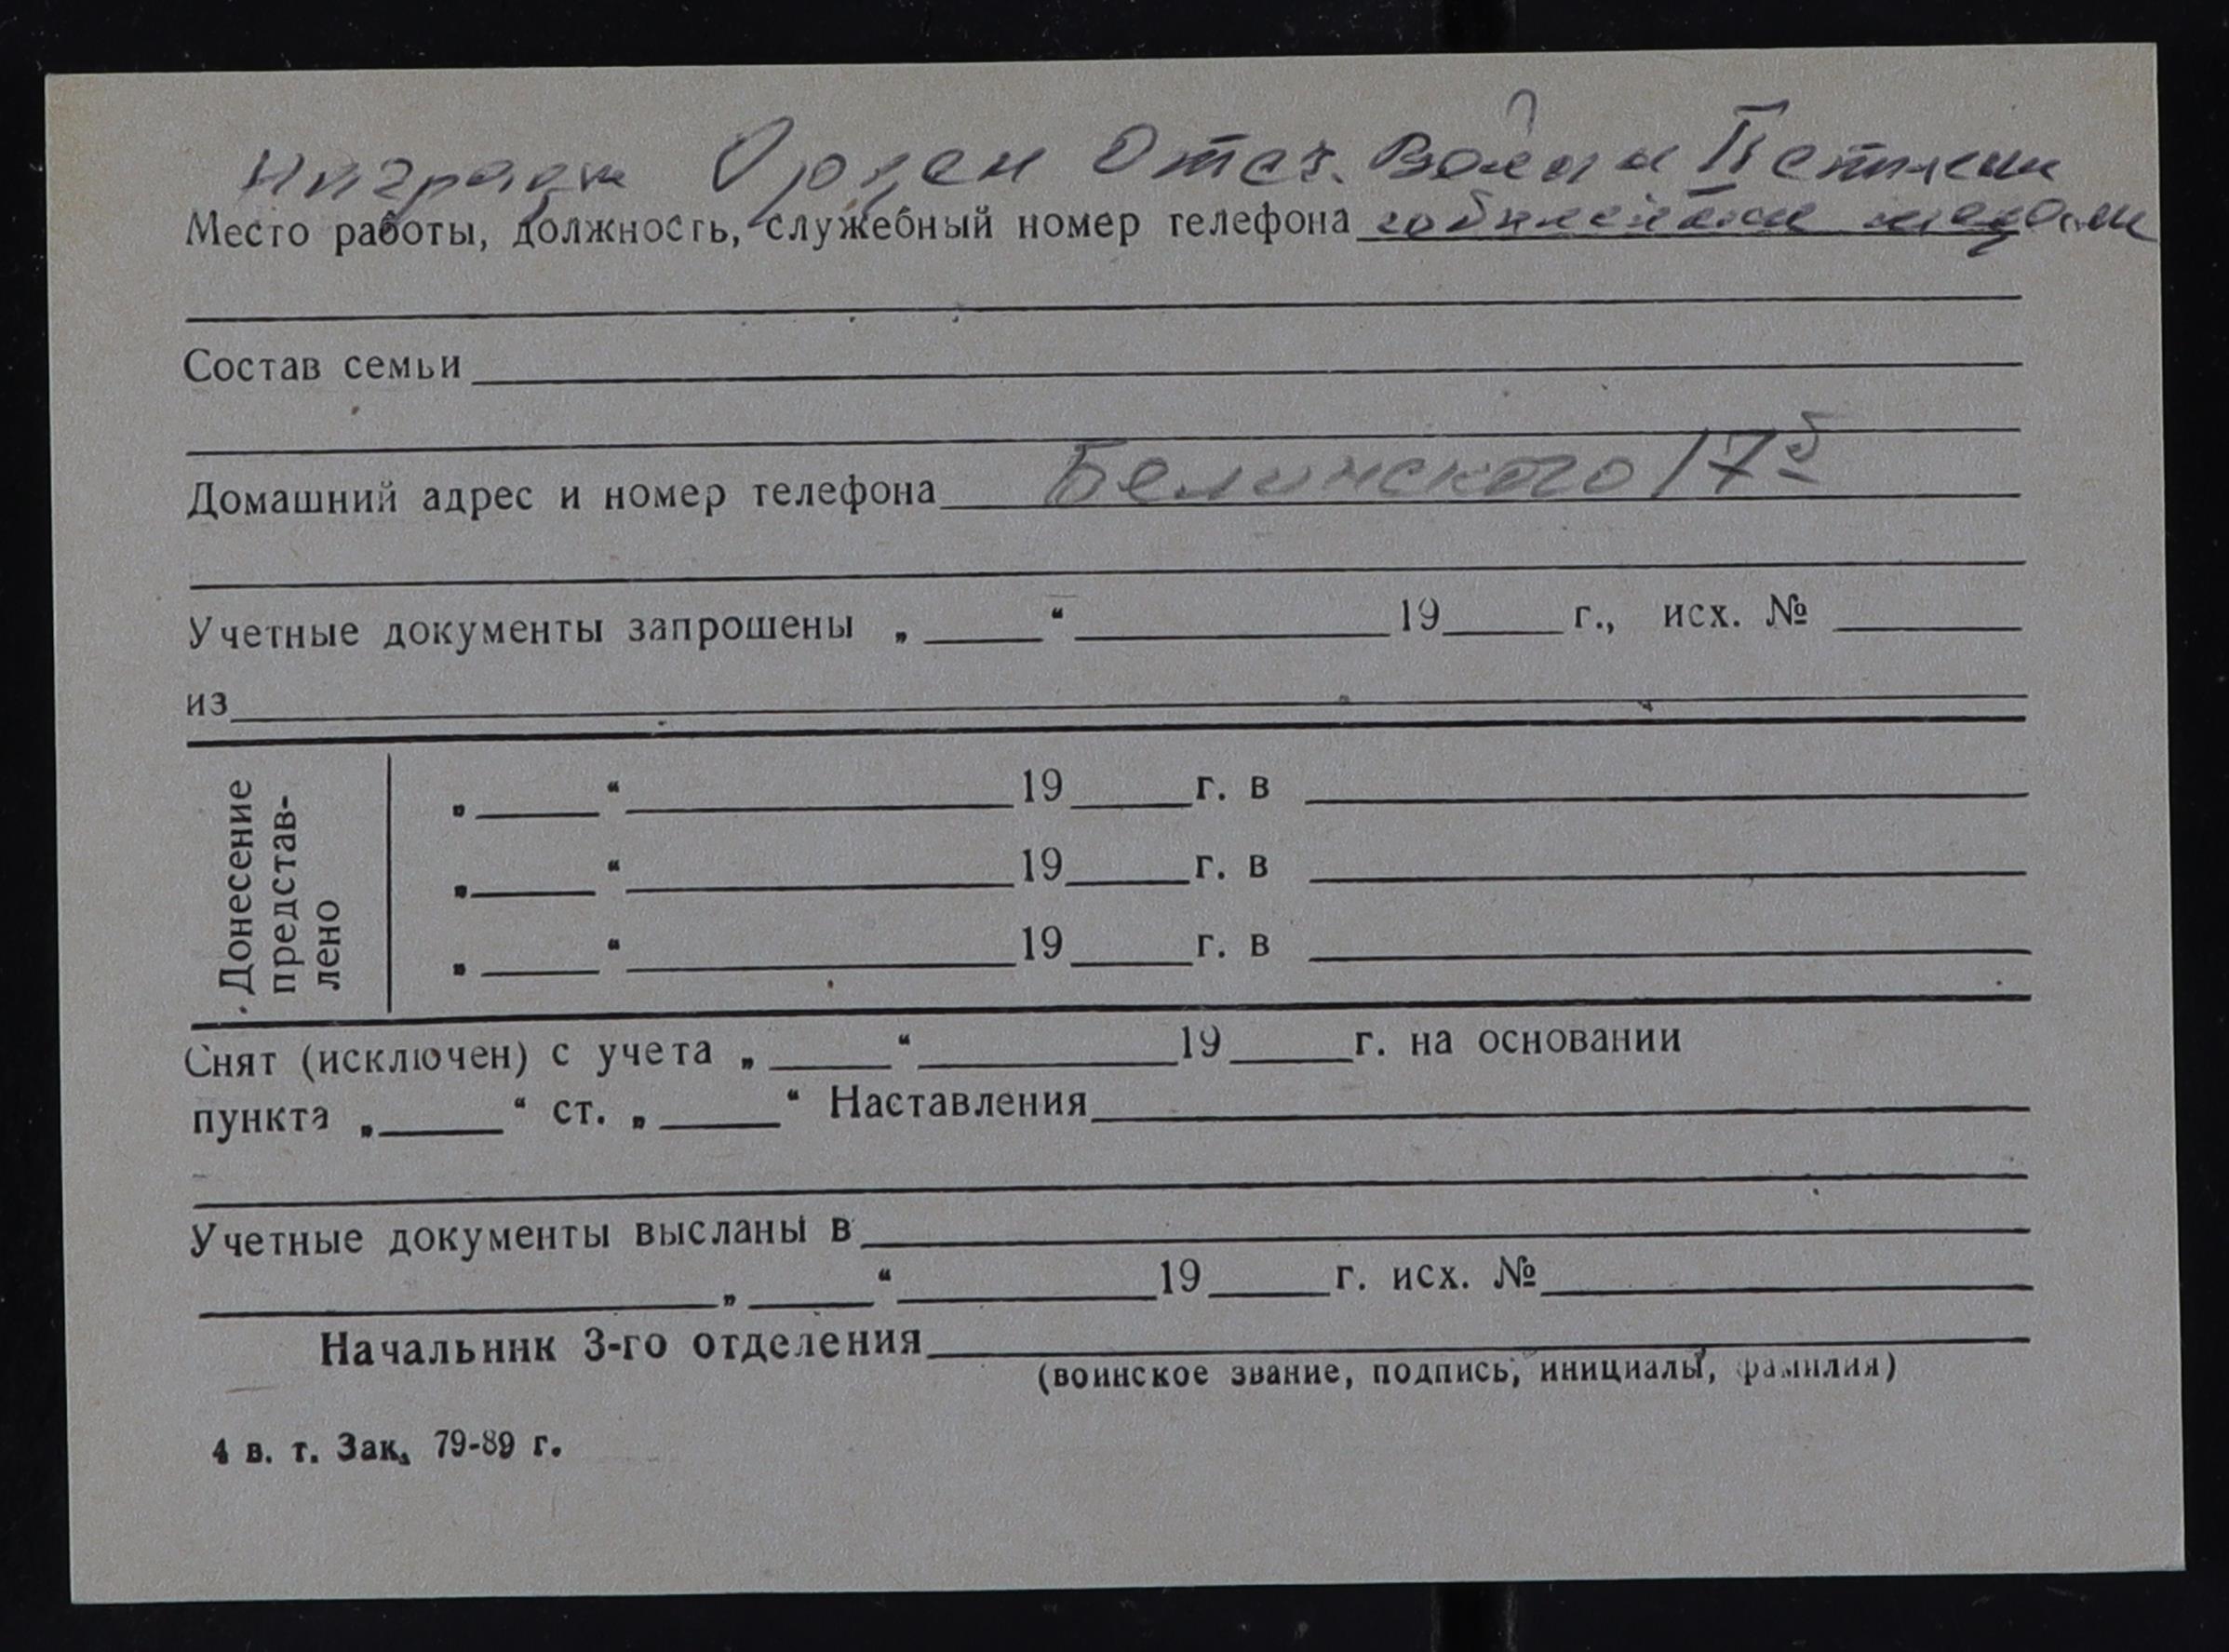 Награжд Орден Отеч. Войны II степени
Место работы, должность, служебный номер телефона юбилейные медали
Состав семьи
Домашний адрес и номер телефона Белинского 17б
Учетные документы запрошены „ “ 19 г., исх. №
из
Донесение представ-
лено
„ “ 19 г. в
„ “ 19 г. в
„ “ 19 г. в
Снят (исключен) с учета „ “ 19 г. на основании
пункта „ “ ст. „ “ Наставления
Учетные документы высланы в
„ “ 19 г. исх. №
Начальник 3-го отделения
(воинское звание, подпись, инициалы, фамилия)
4 в. т. Зак. 79-89 г.